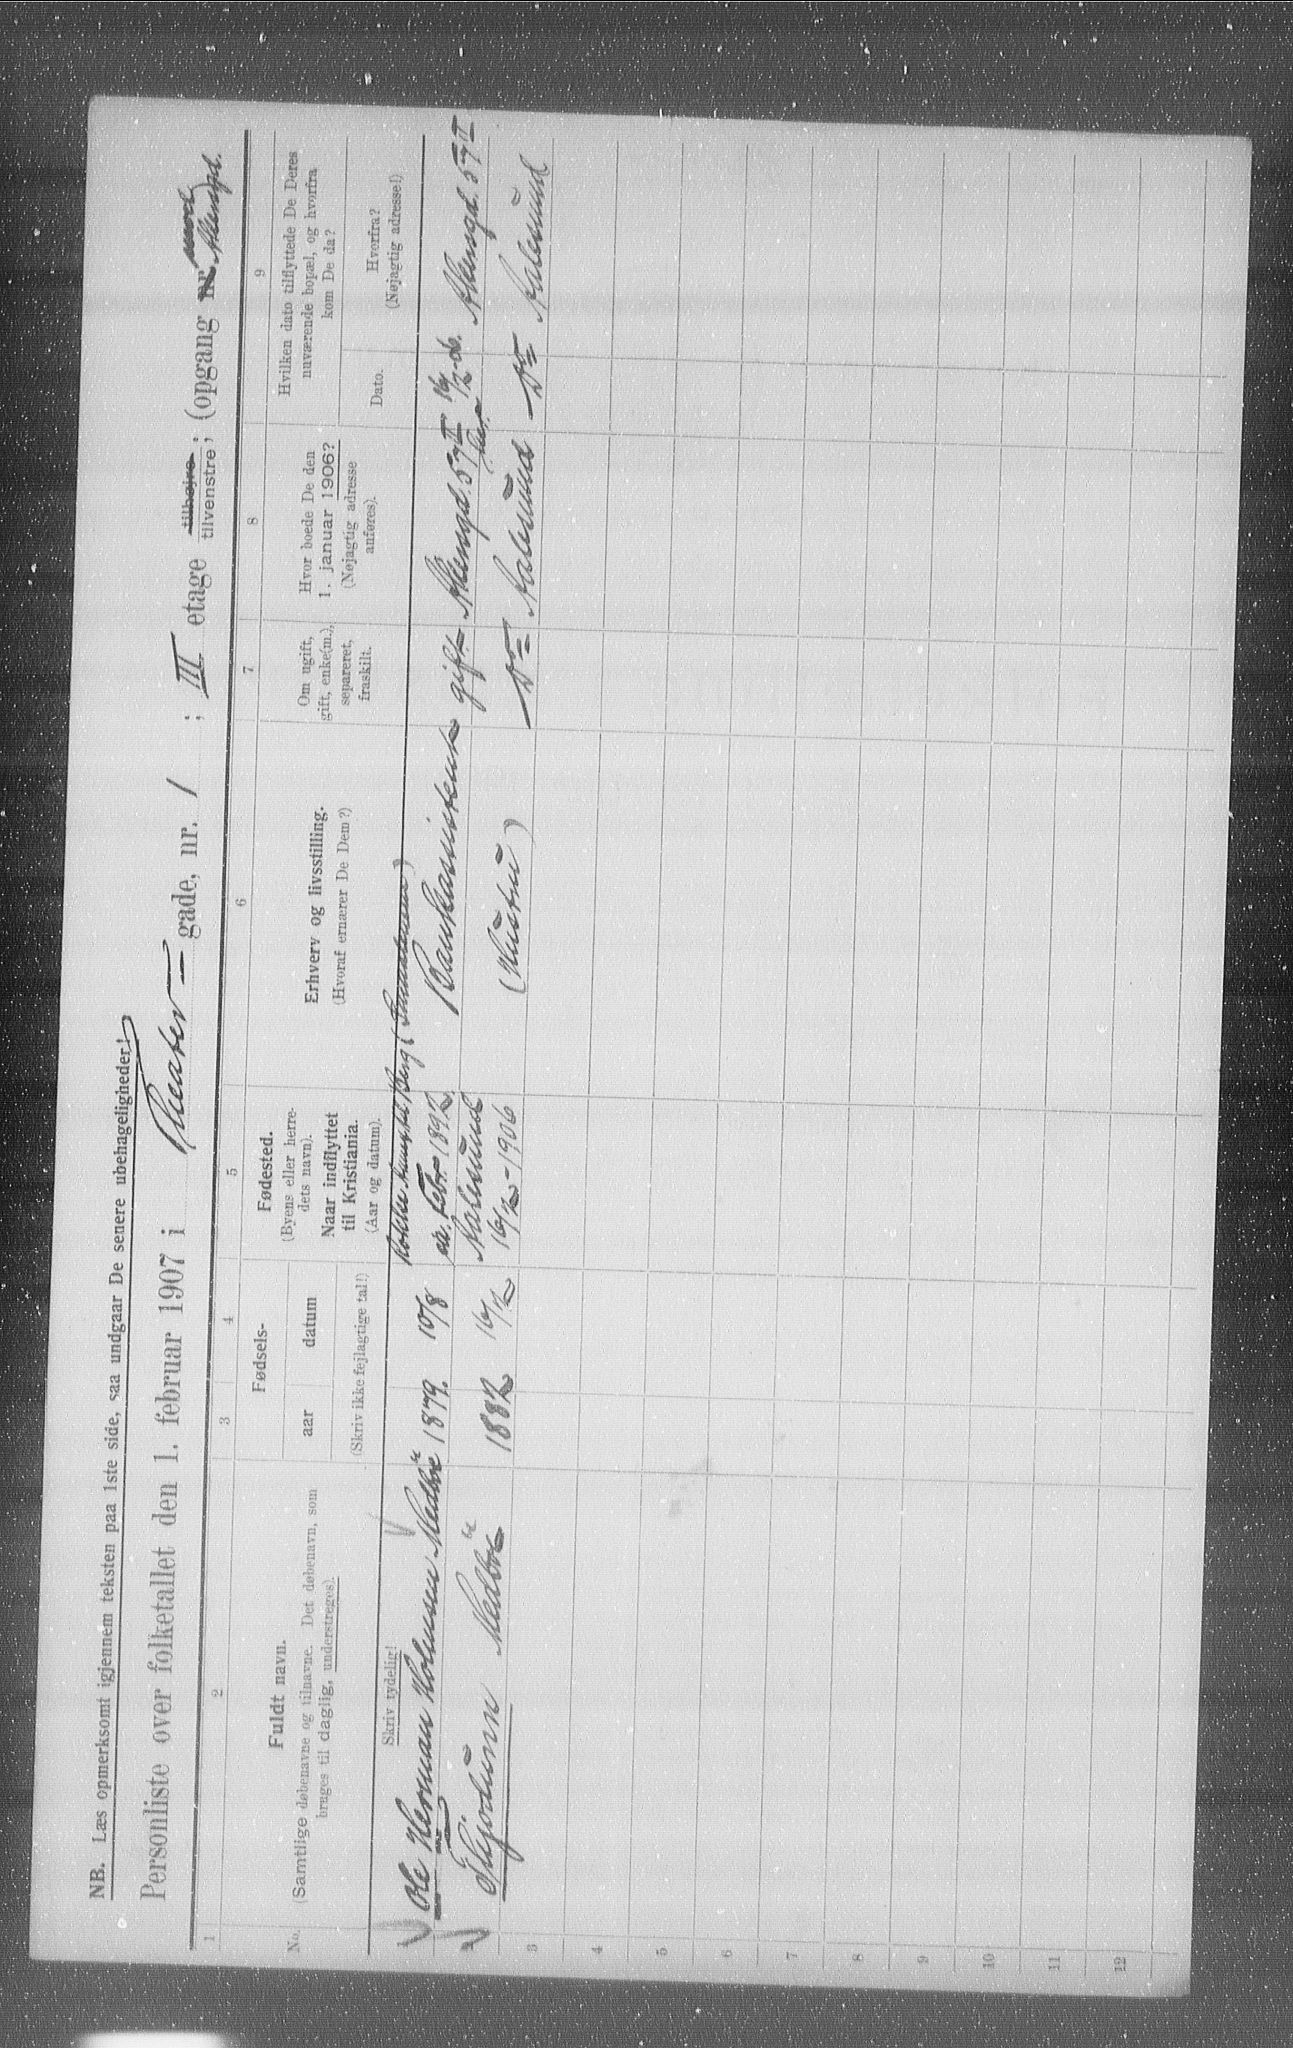 NB. Læs opmerksomt igjennem teksten paa 1ste side, saa undgaar De senere ubehageligheder!
Personliste over folketallet den 1. februar 1907 i Theater - gade, nr. 1 ; III etage tilhøjre, tilvenstre, (opgang nr. mod Akersgd.
1 2 3 4 5 6 7 8 9
No.
Fuldt navn.
(Samtlige døbenavne og tilnavne. Det døbenavn, som
bruges til daglig, understreges).
Skriv tydelig!
Fødsels-
aar datum
(Skriv ikke fejlagtige tal!)
Fødested.
(Byens eller herre-
dets navn).
Naar indflyttet
til Kristiania.
(Aar og datum).
Erhverv og livsstilling.
(Hvoraf ernærer De Dem?)
Om ugift,
gift, enke(m.),
separeret,
fraskilt.
Hvor boede De den
1. januar 1906?
(Nøjagtig adresse
anføres).
Hvilken dato tilflyttede De Deres
nuværende bopæl, og hvorfra
kom De da?
Dato.
Hvorfra?
(Nøjagtig adresse!)
1 Ole Herman Holmsen Medbøe 1879. 10/8 Berg ca. Febr. 1892 Bankassistent gift Akersgd. 57 II 16/12-06. Akersgd. 57 II
2 Thjodunn Medbøe 1882 16/12 Aalesund 16/12-1906 (Hustru) Do Aalesund Do Aalesund
3
4
5
6
7
8
9
10
11
12